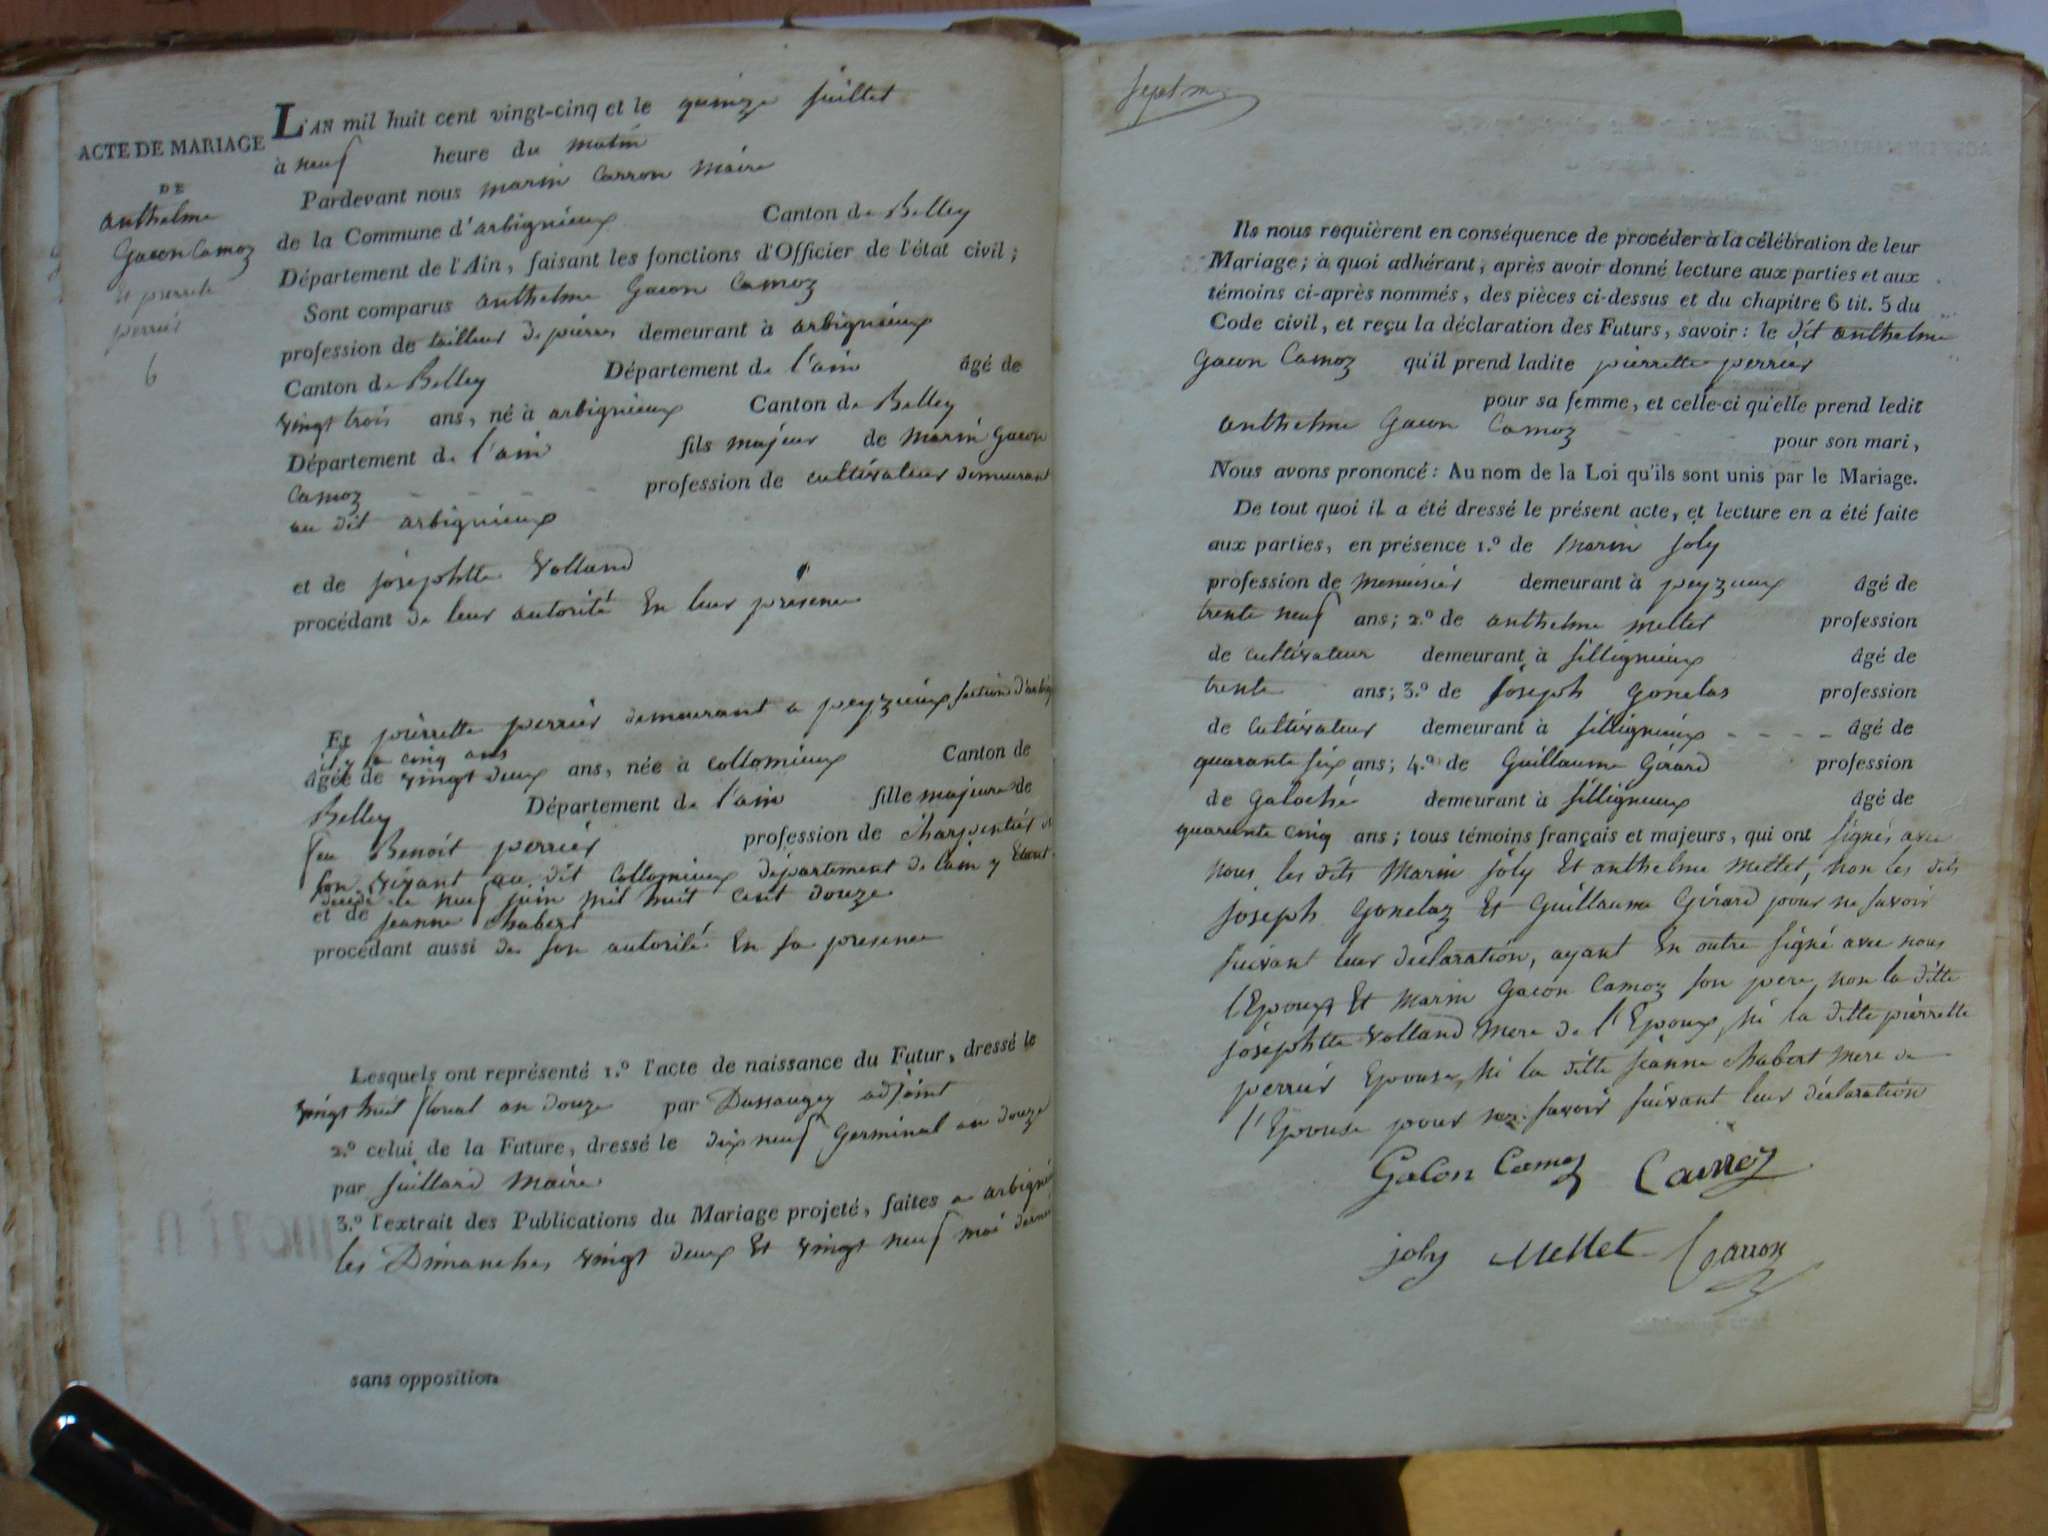 ACTE DE MARIAGE
DE
anthelme
Gacon Camoz
et pierrete
perrier
6
L'AN mil huit cent vingt-cinq et le quinze juillet
à neuf heure du matin
Pardevant nous marin Carron Maire
de la Commune d'arbignieux Canton de Belley
Département de l'Ain, faisant les fonctions d'Officier de l'état civil ;
Sont comparus anthelme Gacon Camoz
profession de tailleur de pierres demeurant à arbignieux
Canton de Belley Département de l'ain âgé de
vingt trois ans, né à arbignieux Canton de Belley
Département de l'ain fils majeur de Marin Gacon
Camoz profession de cultivateur demeurant
au dit arbignieux
et de josephtte Volland
procédant de leur autorité En leur presence
Et pierrette perrier demeurant a peyzieux section d'arbig
il y a cinq ans
âgée de vingt deux ans, née à collomieux Canton de
Belley Département de l'ain fille majeure de
feu Benoit perrier profession de charpentier
son vivant au dit Collomieux département de l'ain y Etant
décédé le neuf juin mil huit cent douze
et de jeanne chabert
procédant aussi de son autorité En sa presence
Lesquels ont représenté 1.º l'acte de naissance du Futur, dressé le
vingt huit floreal an douze par Dussaugey adjoint
2.º celui de la Future, dressé le dix neuf Germinal an douze
par juillard Maire
3.º l'extrait des Publications du Mariage projeté, faites a arbigni
les Dimanches vingt deux Et vingt neuf mai dernier
sans opposition
Ils nous requièrent en conséquence de procéder à la célébration de leur
Mariage ; à quoi adhérant, après avoir donné lecture aux parties et aux
témoins ci-après nommés, des pièces ci-dessus et du chapitre 6 tit. 5 du
Code civil, et reçu la déclaration des Futurs, savoir : le dit anthelme
Gacon Camoz qu'il prend ladite pierrette perrier
pour sa femme, et celle-ci qu'elle prend ledit
anthelme Gacon Camoz pour son mari,
Nous avons prononcé : Au nom de la Loi qu'ils sont unis par le Mariage.
De tout quoi il a été dressé le présent acte, et lecture en a été faite
aux parties, en présence 1.º de Marin joly
profession de Menuisier demeurant à peyzieux âgé de
trente neuf ans ; 2.º de anthelme mellet profession
de cultivateur demeurant à sillignieux âgé de
trente ans ; 3.º de joseph gonelas profession
de cultivateur demeurant à sillignieux - - - - âgé de
quarante six ans ; 4.º de Guillaume Girard profession
de Galoché demeurant à sillignieux âgé de
quarante cinq ans ; tous témoins français et majeurs, qui ont signés avec
nous les dits Marin joly Et anthelme Mellet, non les dits
joseph gonelaz Et Guillaume Girard pour ne savoir
suivant leur déclaration, ayant En outre signé avec nous
l'Epoux Et Marin Gacon Camoz son pere, non la ditte
josephtte Volland mere de l'Epoux, ni la ditte pierrette
perrier Epouse, ni la ditte jeanne chabert mere de
l'Epouse pour ne savoir suivant leur déclaration
Gacon Camoz
joly Mellet Carron